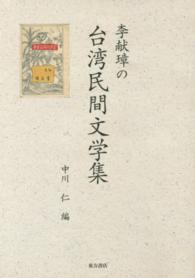 李献璋の
台湾民間文学集
中川 仁 編
東方書店